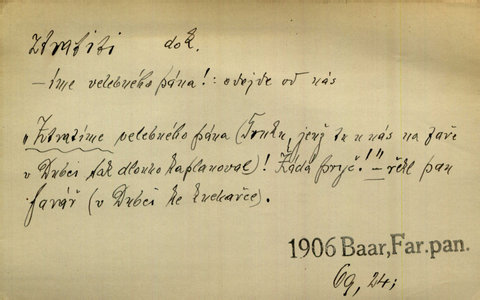 ztratiti dok.
—íme velebného pána!: odejde od nás
„Ztratíme velebného pána (Tonku, jenž tu u nás na faře
v Dubči tak dlouho kaplanoval)! Žádá pryč!" — řekl pan
farář (v Dubči ke kuchařce).
1906 Baar, Far. pan.
69, 24;